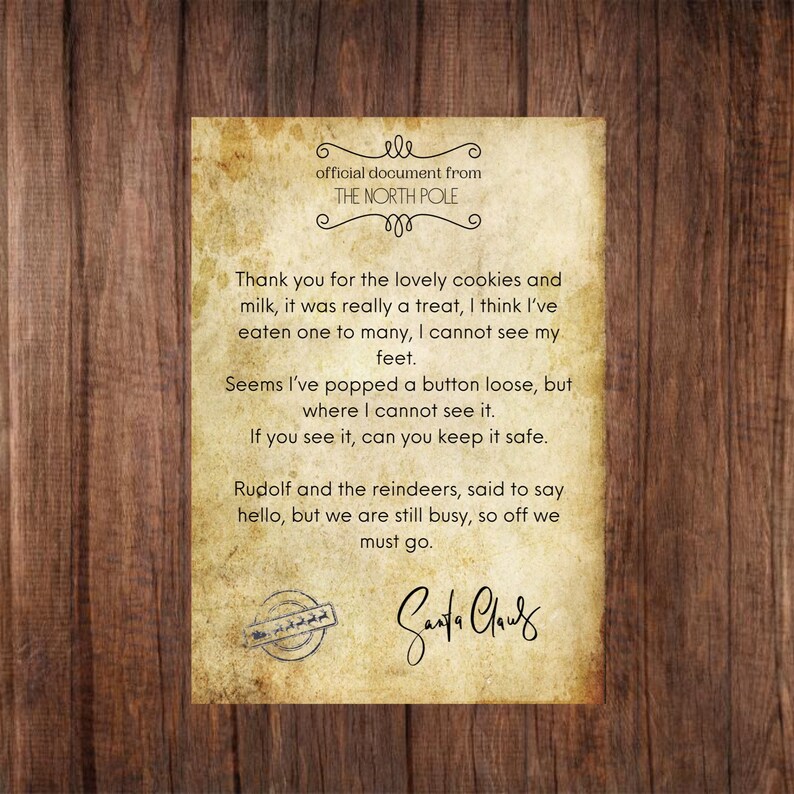 official document from
THE NORTH POLE
Thank you for the lovely cookies and
milk, it was really a treat, I think I've
eaten one to many, I cannot see my
feet.
Seems I've popped a button loose, but
where I cannot see it.
If you see it, can you keep it safe.
Rudolf and the reindeers, said to say
hello, but we are still busy, so off we
must go.
Santa Claus